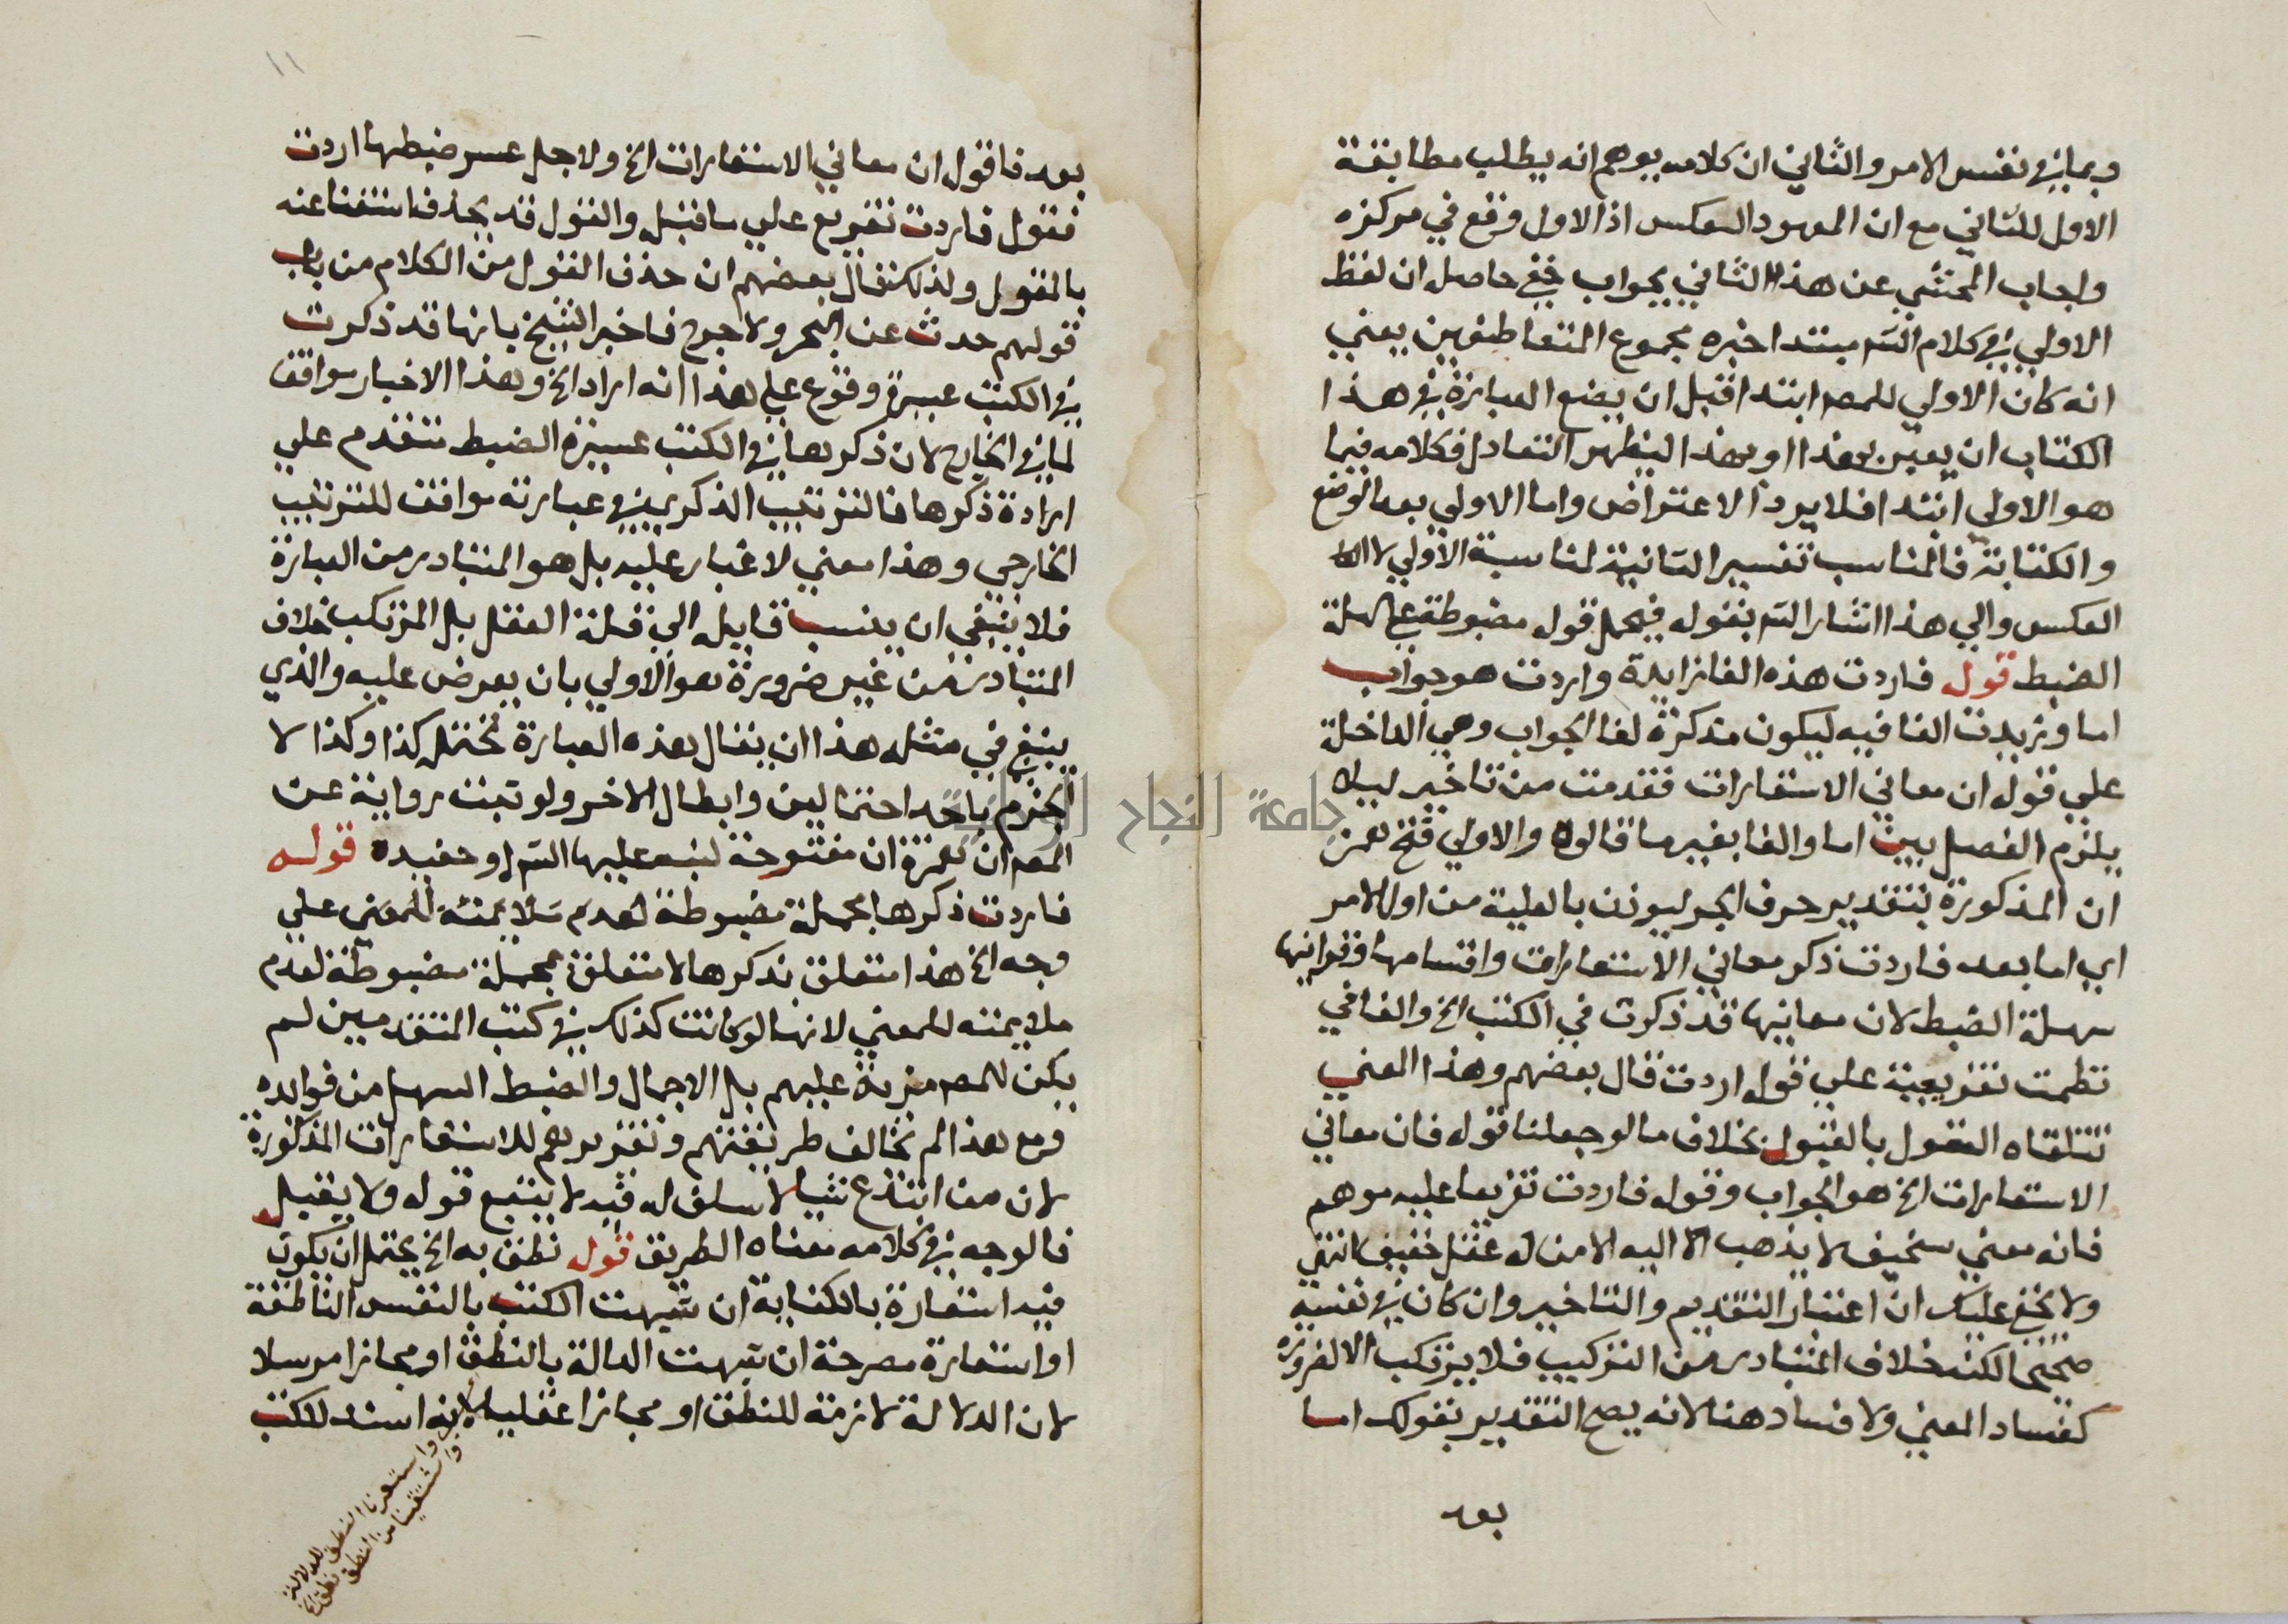 وبما في نفس الامر والثاني ان كلامه يوهم انه يطلب مطابقة
الاول للثاني مع ان المعهود العكس اذ الاول وقع في مركزه
واجاب المحشي عن هذا الثاني بجواب خفي حاصله ان لفظ
الاولي في كلام الش مبتدا خبره مجموع المتعاطفين يعني
انه كان الاولي للمص ابتدا قبل ان يضع العبارة في هذا
الكتاب ان يعبر بهذا او بهذا ليظهر التعادل في كلامه فيما
هو الاولي ابتدا فلا يرد الاعتراض واما الاولي بعد الوضع
والكتابة فالمناسب تفسير الثانية لمناسبة الاولي لا
العكس والي هذا اشار الش بقوله فيحمل قوله مضبوطة علي سهلة
الضبط قوله فاردت هذه الفا زايدة واردت هو جواب
اما وزيدت الفا فيه ليكون مذكرة لفا الجواب وهي الداخلة
علي قوله ان معاني الاستعارات فقدمت من تاخير ليلا
يلزم الفصل بين اما والفا بغير ما قالوه والاولي فتح همزة
ان المذكورة بتقدير حرف الجر ليوذن بالعلية من اول الامر
اي اما بعد فاردت ذكر معاني الاستعارات واقسامها وقراينها
سهلة الضبط لان معانيها قد ذكرت في الكتب الخ والفا في
نظمت تفريعية علي قوله اردت قال بعضهم وهذا المعني
تتلقاه العقول بالقبول بخلاف ما لو جعلنا قوله فان معاني
الاستعارات الخ هو الجواب وقوله فاردت تفريعا عليه موهم
فانه معني سخيف لا يذهب اليه الا من له عقل خفيف انتهي
ولا يخفي عليك ان اعتبار التقديم والتاخير وان كان في نفسه
صحيحا لكنه خلاف المتبادر من التركيب فلا يرتكب الا لضرورة
كفساد المعني ولا فساد هنا لانه يصح التقدير بقولك اما
بعد
١١
بعد فاقول ان معاني الاستعارات الخ ولاجل عسر ضبطها اردت
فقوله فاردت تفريع علي ما قبله والقول قد يحذف استغنا عنه
بالمقول ولذلك قال بعضهم ان حذف القول من الكلام من باب
قولهم حدث عن البحر ولا حرج فاخبر الشيخ بانها قد ذكرت
في الكتب عسيرة وفرع علي هذا انه اراد الخ وهذا الاخبار موافق
لما في الخارج لان ذكرها في الكتب عسيرة الضبط متقدم علي
ارادة ذكرها فالترتيب الذكري في عبارته موافق للترتيب
الخارجي وهذا معني لا غبار عليه بل هو المتبادر من العبارة
فلا ينبغي ان ينسب قايله الي قلة العقل بل المرتكب خلاف
المتبادر من غير ضرورة هو الاولي بان يعرض عليه والذي
ينبغي في مثل هذا ان يقال هذه العبارة تحتمل كذا وكذا لا
الجزم باحد احتمالين وابطال الاخر ولو ثبت رواية عن
المص ان همزة ان مفتوحة لنبه عليها الش او حفيده قوله
فاردت ذكرها مجملة مضبوطة لعدم ملايمته للمعني علي
وجه الخ هذا متعلق بذكرها لا متعلق بمجملة مضبوطة لعدم
ملايمته للمعني لانها لو كانت كذلك في كتب المتقدمين لم
يكن للمص مزية عليهم بل الاجمال والضبط السهل من فوايده
ومع هذا لم تخالف طريقتهم وتقريرهم للاستعارات المذكورة
لان من ابتدع شيا لا سلف له فيه لا يتبع قوله ولا يقبل
فالوجه في كلامه معناه الطريق قوله نطق به الخ يحتمل ان يكون
فيه استعارة بالكناية ان شبهت الكتب بالنفس الناطقة
او استعارة مصرحة ان شبهت الدالة بالنطق او مجازا مرسلا
لان الدلالة لازمة للنطق او مجازا عقليا لانه اسند للكتب
واستعرنا النطق للدلالة
واشتقينا من النطق نطق الخ
جامعة النجاح الوطنية